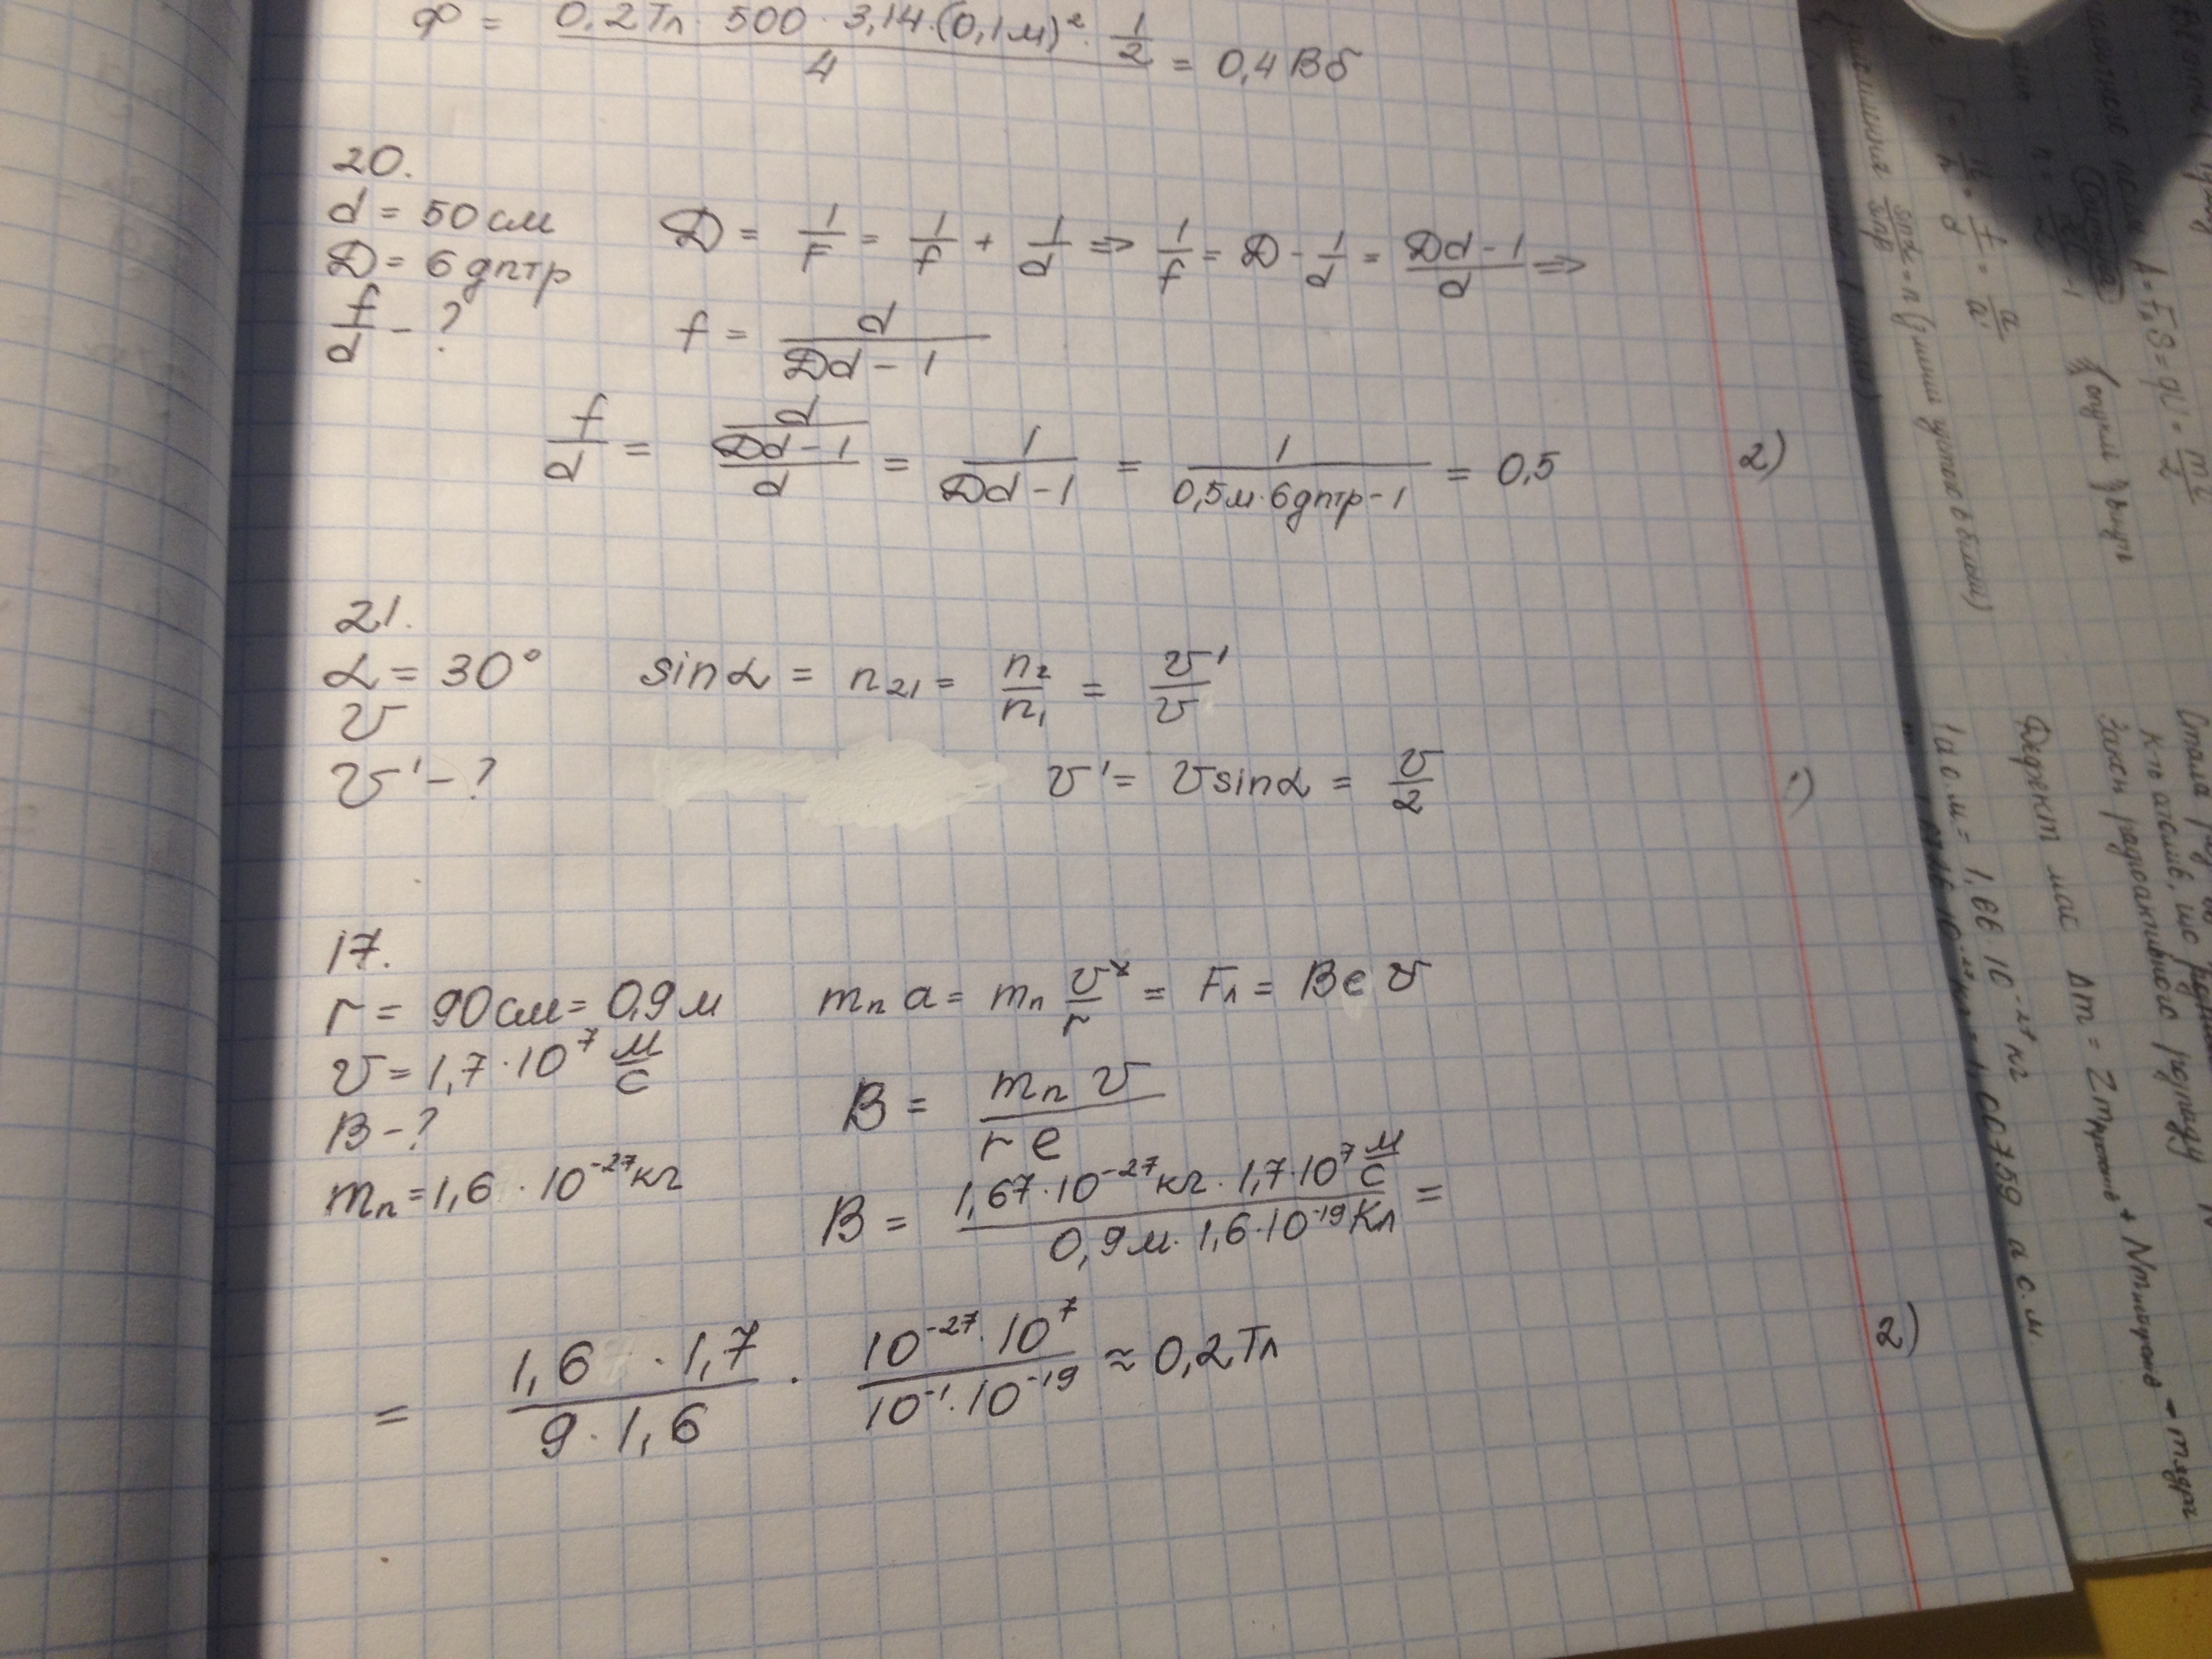 Ф = 0,2Тл · 500 · 3,14 · (0,1м)² · 1/2 / 4 = 0,4 Вб
20.
d = 50 см
D = 6 дптр
f/d - ?
D = 1/F = 1/f + 1/d => 1/f = D - 1/d = Dd-1/d =>
f = d/Dd-1
f/d = d/Dd-1/d = 1/Dd-1 = 1/0,5м·6дптр-1 = 0,5
2)
21.
α = 30°
v
v' - ?
sinα = n₂₁ = n₂/n₁ = v'/v
v' = v sinα = v/2
1)
17.
r = 90 см = 0,9 м
v = 1,7 · 10⁷ м/с
B - ?
mₙ = 1,6 · 10⁻²⁷ кг
mₙ a = mₙ v²/r = Fл = B e v
B = mₙ v/r e
B = 1,67 · 10⁻²⁷ кг · 1,7 · 10⁷ м/с / 0,9 м · 1,6 · 10⁻¹⁹ Кл =
= 1,6 · 1,7 / 9 · 1,6 · 10⁻²⁷ · 10⁷ / 10⁻¹ · 10⁻¹⁹ ≈ 0,2 Тл
2)
A = F S = qU =
Дефект мас Δm = Zmпротонів + Nmнейтронів - mядра
1 а.о.м = 1,66 · 10⁻²⁷ кг
Закон радіоактивного розпаду